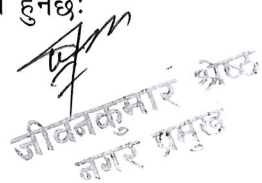 हुनेछः
जीवनकुमार श्रेष्ठ
नगर प्रमुख